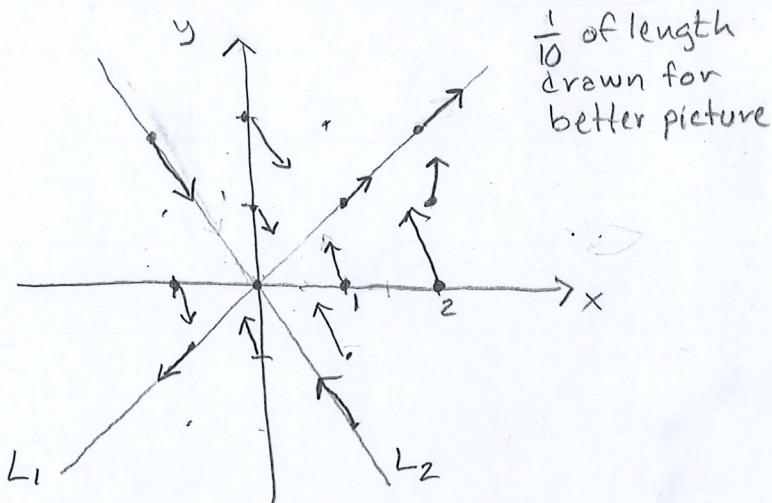 y
1/10 of length
drawn for
better picture
1
2
x
L1
L2